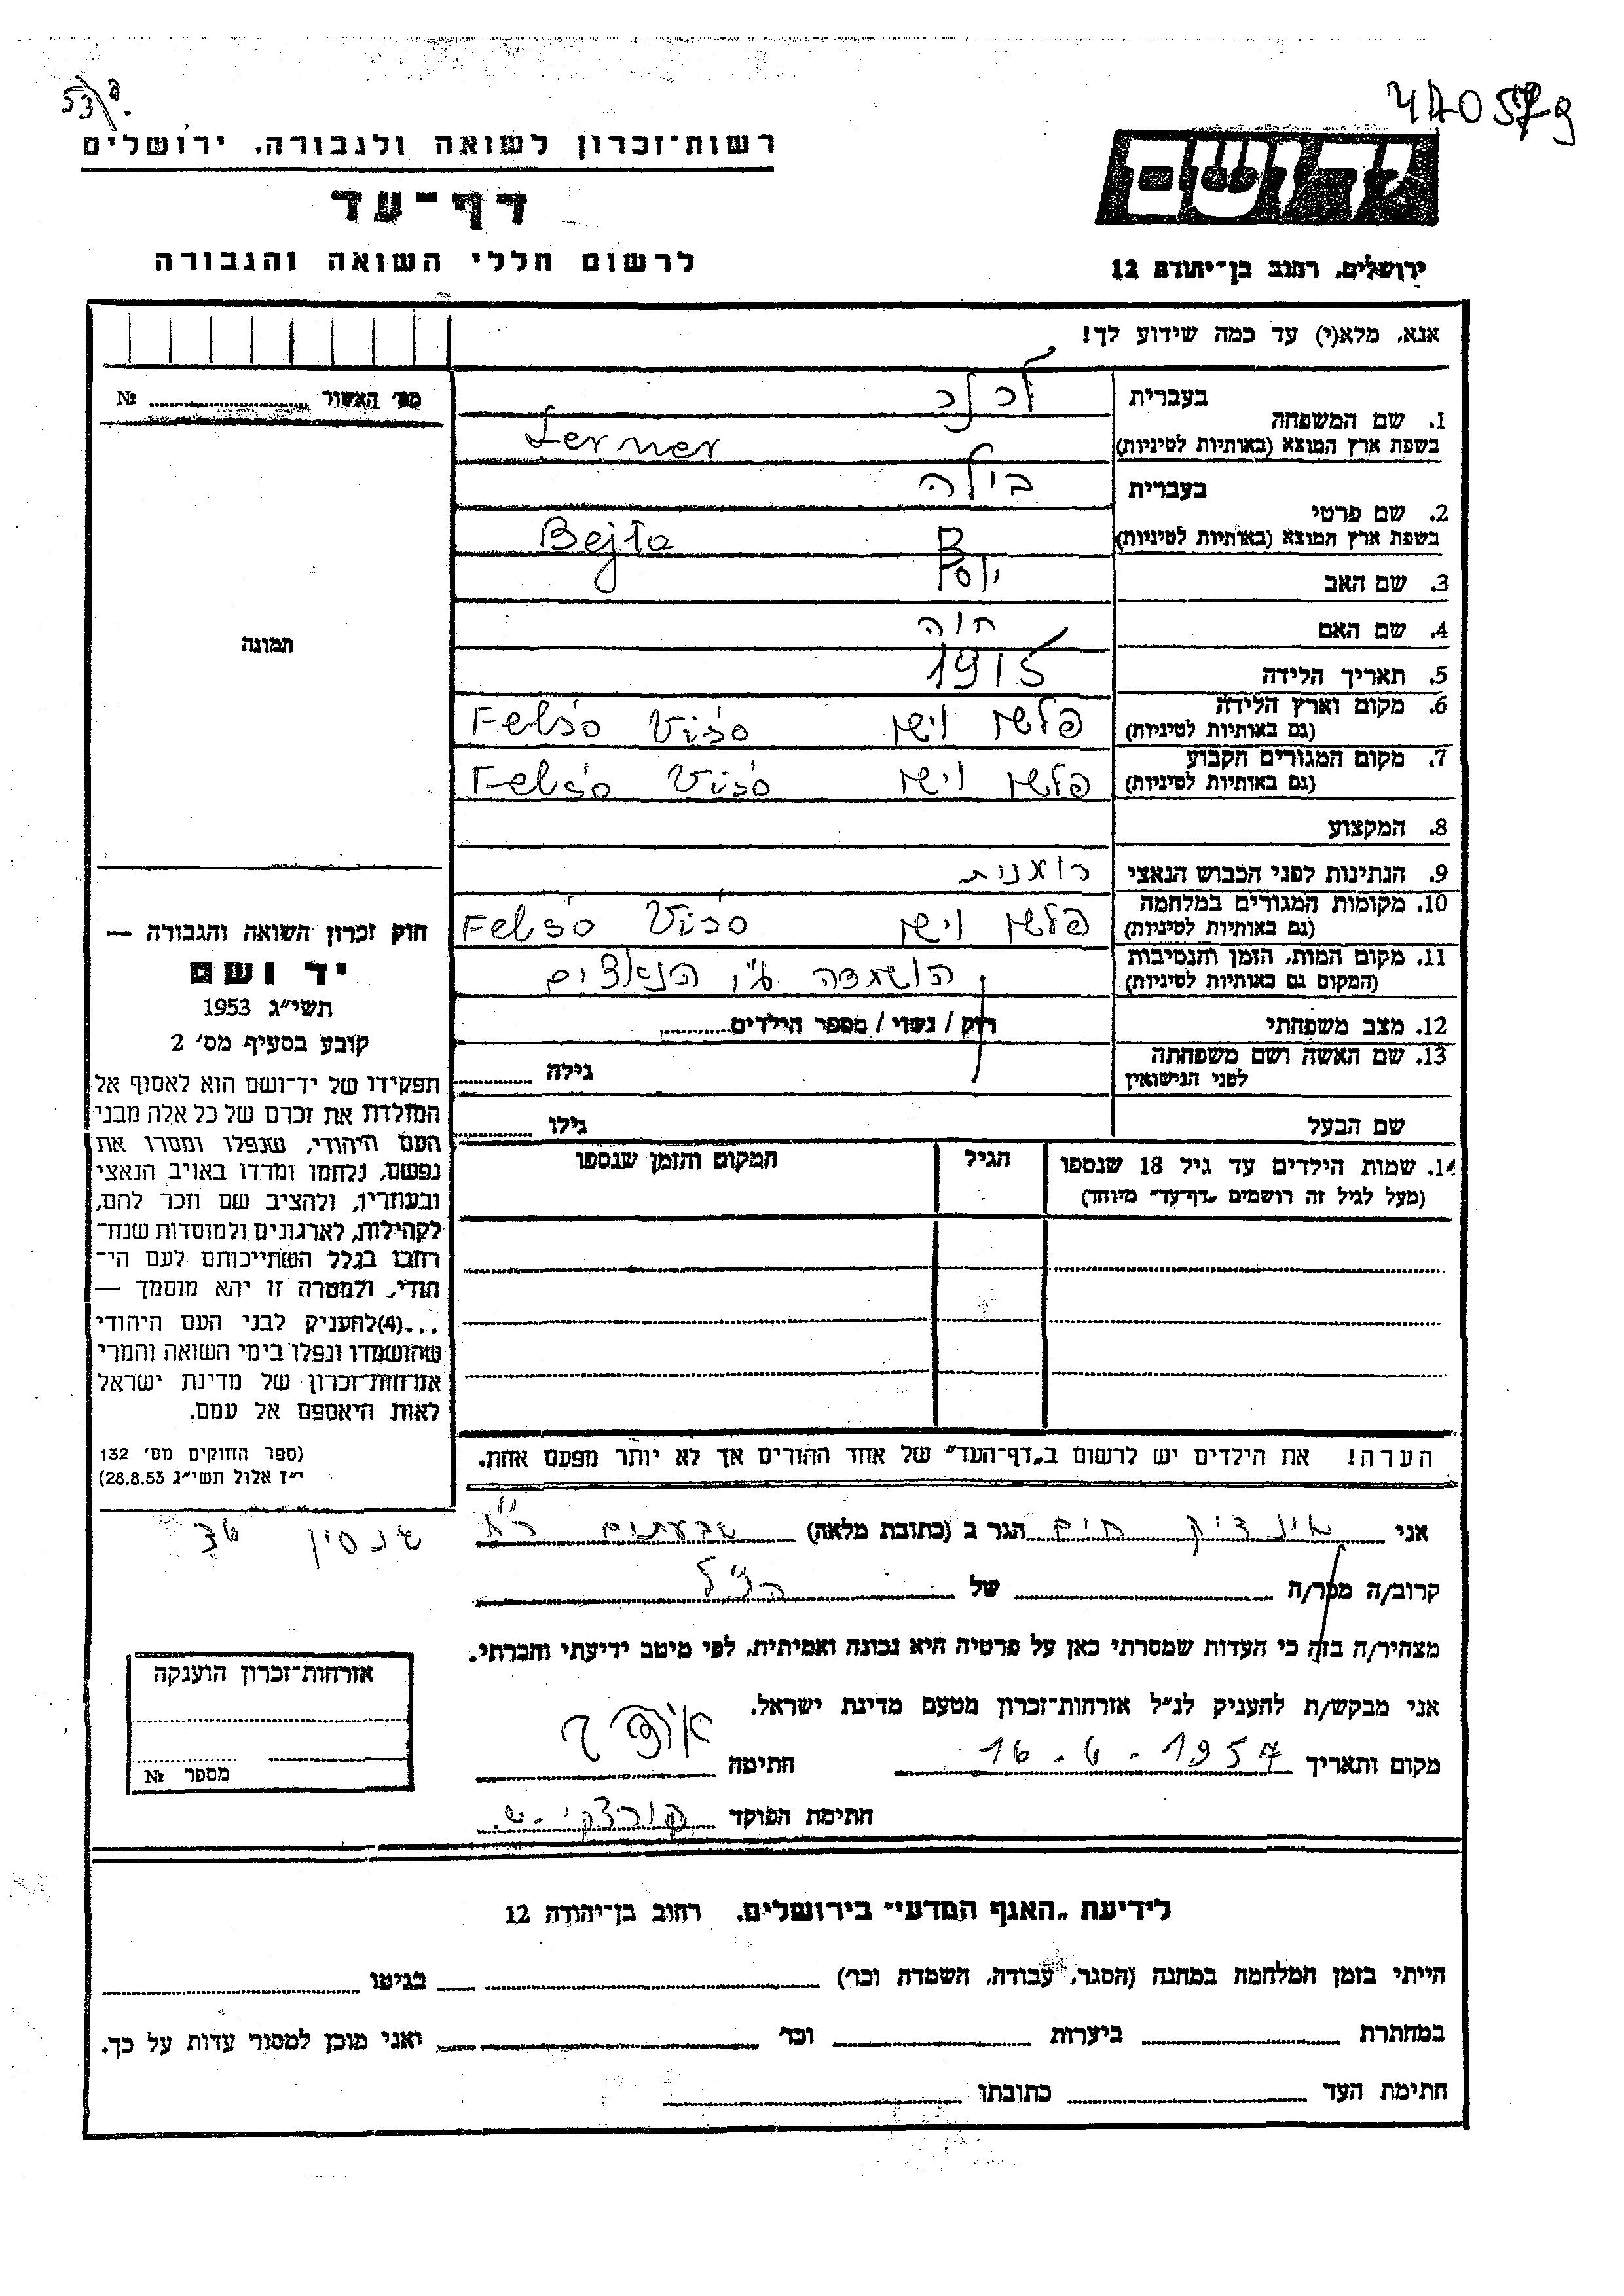 53
440579
רשות־זכרון לשואה ולגבורה. ירושלים
דף־עד
לרשום חללי השואה והגבורה
ידושם
ירושלים, רחוב בן־יהודה 12
אנא, מלא(י) עד כמה שידוע לך!
מס׳ האשור № 
1. שם המשפחה
בעברית לרנר
בשפת ארץ המוצא (באותיות לטיניות) Lerner
2. שם פרטי
בעברית בילה
בשפת ארץ המוצא (באותיות לטיניות) Bejla
3. שם האב יוסף
4. שם האם חוה
5. תאריך הלידה 1915
6. מקום וארץ הלידה
(גם באותיות לטיניות) פלשו וישו Felső Viső
7. מקום המגורים הקבוע
(גם באותיות לטיניות) פלשו וישו Felső Viső
8. המקצוע
9. הנתינות לפני הכבוש הנאצי רומנית
10. מקומות המגורים במלחמה
(גם באותיות לטיניות) פלשו וישו Felső Viső
11. מקום המות, הזמן והנסיבות
(המקום גם באותיות לטיניות) הושמדה ע״י הנאצים
12. מצב משפחתי רוק / נשוי / מספר הילדים
13. שם האשה ושם משפחתה
לפני הנישואין גילה
שם הבעל גילו
14. שמות הילדים עד גיל 18 שנספו
(מעל לגיל זה רושמים „דף־עד״ מיוחד)
הגיל
המקום והזמן שנספו
הערה! את הילדים יש לרשום ב„דף־העד״ של אחד ההורים אך לא יותר מפעם אחת.
תמונה
חוק זכרון השואה והגבורה —
יד ושם
תשי״ג 1953
קובע בסעיף מס׳ 2
תפקידו של יד־ושם הוא לאסוף אל
המולדת את זכרם של כל אלה מבני
העם היהודי, שנפלו ומסרו את
נפשם, נלחמו ומרדו באויב הנאצי
ובעוזריו, ולהציב שם וזכר להם,
לקהילות, לארגונים ולמוסדות שנח־
רבו בגלל השתייכותם לעם הי־
הודי, ולמטרה זו יהא מוסמך —
...(4)להעניק לבני העם היהודי
שהושמדו ונפלו בימי השואה והמרי
אזרחות־זכרון של מדינת ישראל
לאות היאספם אל עמם.
(ספר החוקים מס׳ 132
י״ז אלול תשי״ג 28.8.53)
אני חיים הגר ב (כתובת מלאה) גבעתיים רח׳ שנקין 36
קרוב/ה מכר/ה של הנ״ל
מצהיר/ה בזה כי העדות שמסרתי כאן על פרטיה היא נכונה ואמיתית, לפי מיטב ידיעתי והכרתי.
אני מבקש/ת להעניק לנ״ל אזרחות־זכרון מטעם מדינת ישראל.
מקום ותאריך 16.6.1957 חתימה
חתימת הפוקד
אזרחות־זכרון הוענקה
מספר №
לידיעת „האגף המדעי״ בירושלים, רחוב בן־יהודה 12
הייתי בזמן המלחמה במחנה (הסגר, עבודה, השמדה וכו׳) בגיטו
במחתרת ביערות וכו׳ ואני מוכן למסור עדות על כך.
חתימת העד כתובתו